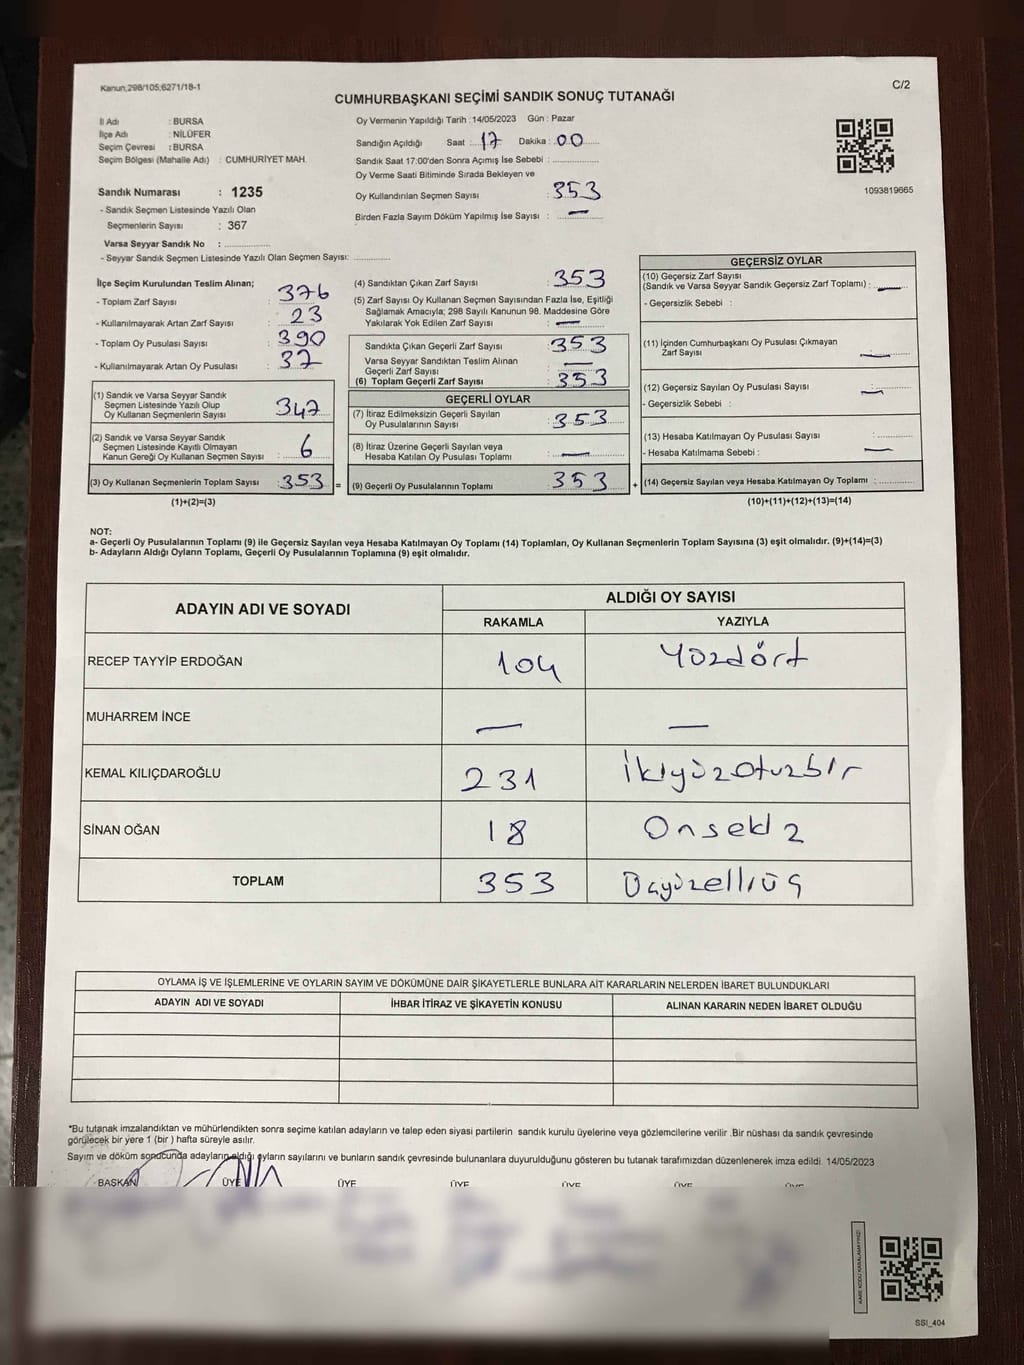 Kanun;298/105;6271/18-1
C/2
CUMHURBAŞKANI SEÇİMİ SANDIK SONUÇ TUTANAĞI
İl Adı : BURSA
İlçe Adı : NİLÜFER
Seçim Çevresi : BURSA
Seçim Bölgesi (Mahalle Adı) : CUMHURİYET MAH.
Sandık Numarası : 1235
- Sandık Seçmen Listesinde Yazılı Olan
Seçmenlerin Sayısı : 367
Varsa Seyyar Sandık No : ................
- Seyyar Sandık Seçmen Listesinde Yazılı Olan Seçmen Sayısı: ............
Oy Vermenin Yapıldığı Tarih : 14/05/2023 Gün : Pazar
Sandığın Açıldığı Saat : 17 Dakika : 00
Sandık Saat 17:00'den Sonra Açımış İse Sebebi : ................
Oy Verme Saati Bitiminde Sırada Bekleyen ve
Oy Kullandırılan Seçmen Sayısı : 353
Birden Fazla Sayım Döküm Yapılmış İse Sayısı : —
1093819665
İlçe Seçim Kurulundan Teslim Alınan;
- Toplam Zarf Sayısı : 376
- Kullanılmayarak Artan Zarf Sayısı : 23
- Toplam Oy Pusulası Sayısı : 390
- Kullanılmayarak Artan Oy Pusulası : 37
(1) Sandık ve Varsa Seyyar Sandık
Seçmen Listesinde Yazılı Olup
Oy Kullanan Seçmenlerin Sayısı : 347
(2) Sandık ve Varsa Seyyar Sandık
Seçmen Listesinde Kayıtlı Olmayan
Kanun Gereği Oy Kullanan Seçmen Sayısı : 6
(3) Oy Kullanan Seçmenlerin Toplam Sayısı : 353 =
(1)+(2)=(3)
(4) Sandıktan Çıkan Zarf Sayısı : 353
(5) Zarf Sayısı Oy Kullanan Seçmen Sayısından Fazla İse, Eşitliği
Sağlamak Amacıyla; 298 Sayılı Kanunun 98. Maddesine Göre
Yakılarak Yok Edilen Zarf Sayısı : —
Sandıkta Çıkan Geçerli Zarf Sayısı : 353
Varsa Seyyar Sandıktan Teslim Alınan
Geçerli Zarf Sayısı : —
(6) Toplam Geçerli Zarf Sayısı : 353
GEÇERLİ OYLAR
(7) İtiraz Edilmeksizin Geçerli Sayılan
Oy Pusulalarının Sayısı : 353
(8) İtiraz Üzerine Geçerli Sayılan veya
Hesaba Katılan Oy Pusulası Toplamı : —
(9) Geçerli Oy Pusulalarının Toplamı : 353 +
GEÇERSİZ OYLAR
(10) Geçersiz Zarf Sayısı
(Sandık ve Varsa Seyyar Sandık Geçersiz Zarf Toplamı) : —
- Geçersizlik Sebebi :
(11) İçinden Cumhurbaşkanı Oy Pusulası Çıkmayan
Zarf Sayısı : —
(12) Geçersiz Sayılan Oy Pusulası Sayısı : —
- Geçersizlik Sebebi :
(13) Hesaba Katılmayan Oy Pusulası Sayısı : ............
- Hesaba Katılmama Sebebi : —
(14) Geçersiz Sayılan veya Hesaba Katılmayan Oy Toplamı : ............
(10)+(11)+(12)+(13)=(14)
NOT:
a- Geçerli Oy Pusulalarının Toplamı (9) ile Geçersiz Sayılan veya Hesaba Katılmayan Oy Toplamı (14) Toplamları, Oy Kullanan Seçmenlerin Toplam Sayısına (3) eşit olmalıdır. (9)+(14)=(3)
b- Adayların Aldığı Oyların Toplamı, Geçerli Oy Pusulalarının Toplamına (9) eşit olmalıdır.
ADAYIN ADI VE SOYADI ALDIĞI OY SAYISI
RAKAMLA YAZIYLA
RECEP TAYYİP ERDOĞAN 104 Yüzdört
MUHARREM İNCE — —
KEMAL KILIÇDAROĞLU 231 İkiyüzotuzbir
SİNAN OĞAN 18 Onsekiz
TOPLAM 353 Üçyüzelliüç
OYLAMA İŞ VE İŞLEMLERİNE VE OYLARIN SAYIM VE DÖKÜMÜNE DAİR ŞİKAYETLERLE BUNLARA AİT KARARLARIN NELERDEN İBARET BULUNDUKLARI
ADAYIN ADI VE SOYADI İHBAR İTİRAZ VE ŞİKAYETİN KONUSU ALINAN KARARIN NEDEN İBARET OLDUĞU
*Bu tutanak imzalandıktan ve mühürlendikten sonra seçime katılan adayların ve talep eden siyasi partilerin sandık kurulu üyelerine veya gözlemcilerine verilir .Bir nüshası da sandık çevresinde
görülecek bir yere 1 (bir ) hafta süreyle asılır.
Sayım ve döküm sonucunda adayların aldığı oyların sayılarını ve bunların sandık çevresinde bulunanlara duyurulduğunu gösteren bu tutanak tarafımızdan düzenlenerek imza edildi. 14/05/2023
BAŞKAN ÜYE ÜYE ÜYE ÜYE ÜYE ÜYE
SSI_404